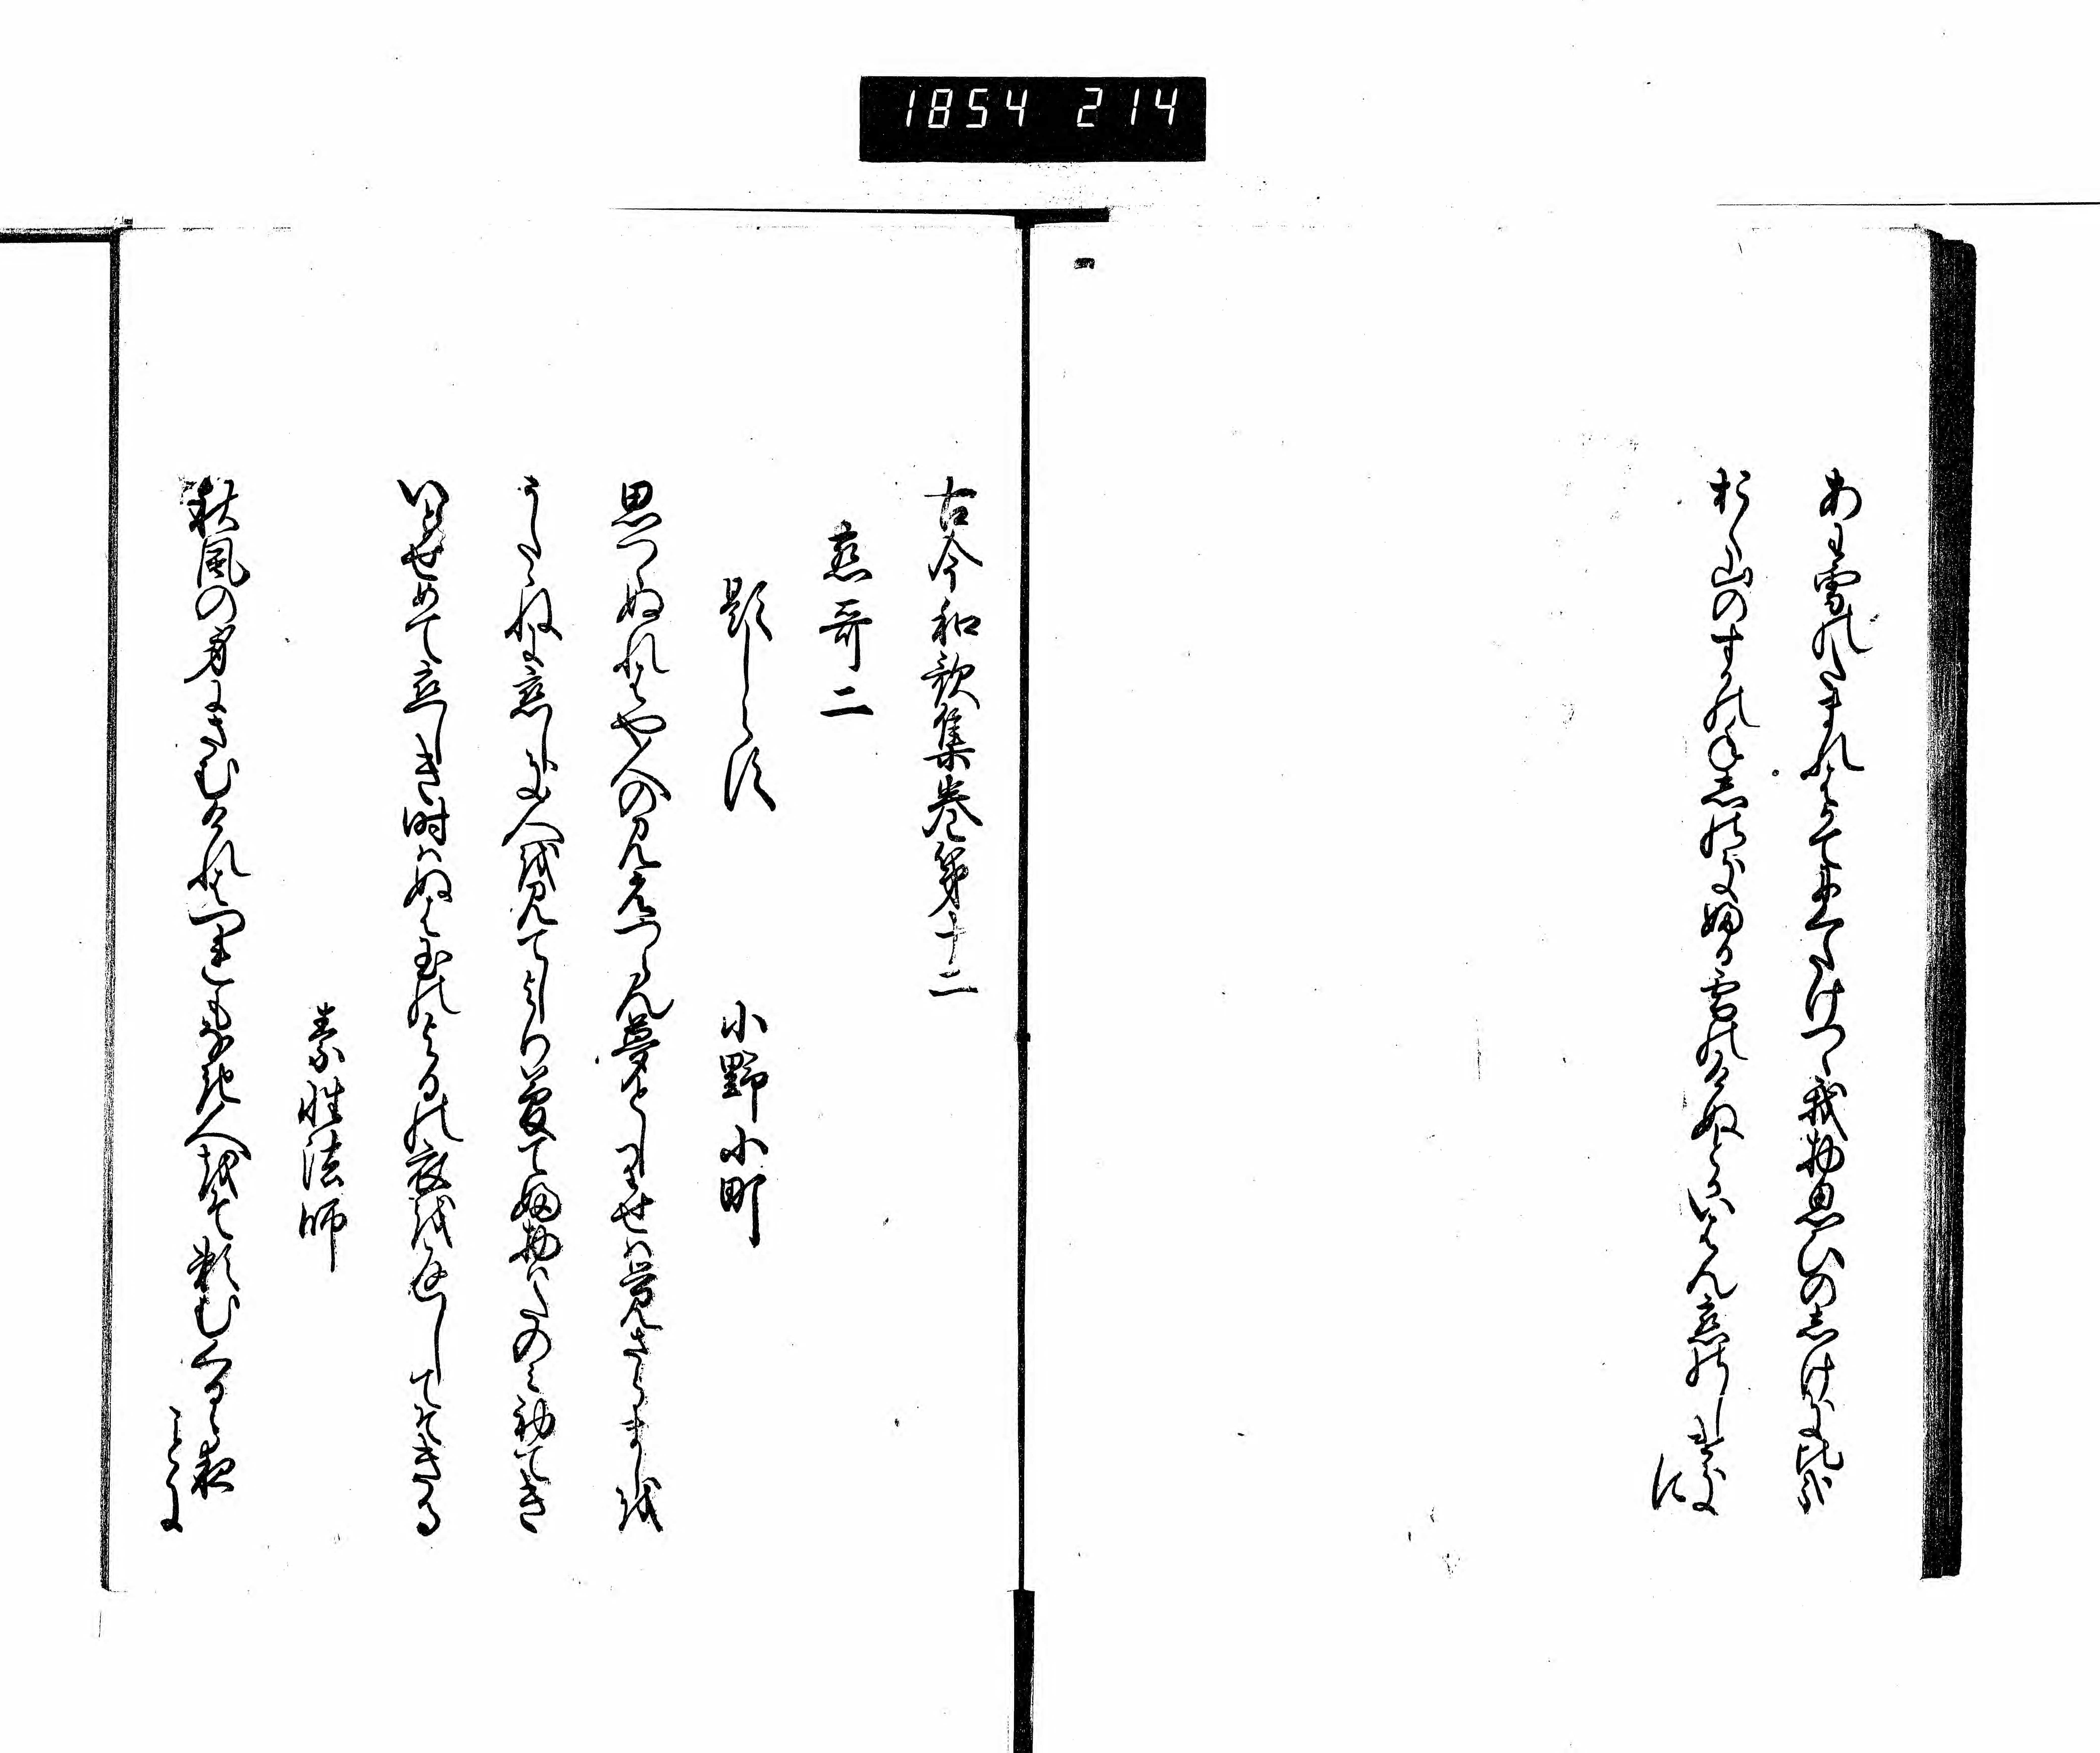 1854 214
あわ雪のたまれはかてにくたけつゝ我物思ひの志けき比哉
おく山のすかのね志のきふる雪のけぬとかいはん恋のしけき
に
古今和歌集巻第十二
恋哥二
題しらす
小野小町
思つゝぬれはや人の見えつらん夢としりせは覚さらましを
うたゝねに恋しき人を見てしより夢てふ物はたのみ初てき
いとせめて恋しき時はぬは玉のよるの衣を返してそきる
素性法師
秋風の身にさむけれはつれもなき人をそ頼むくるゝ夜
ことに